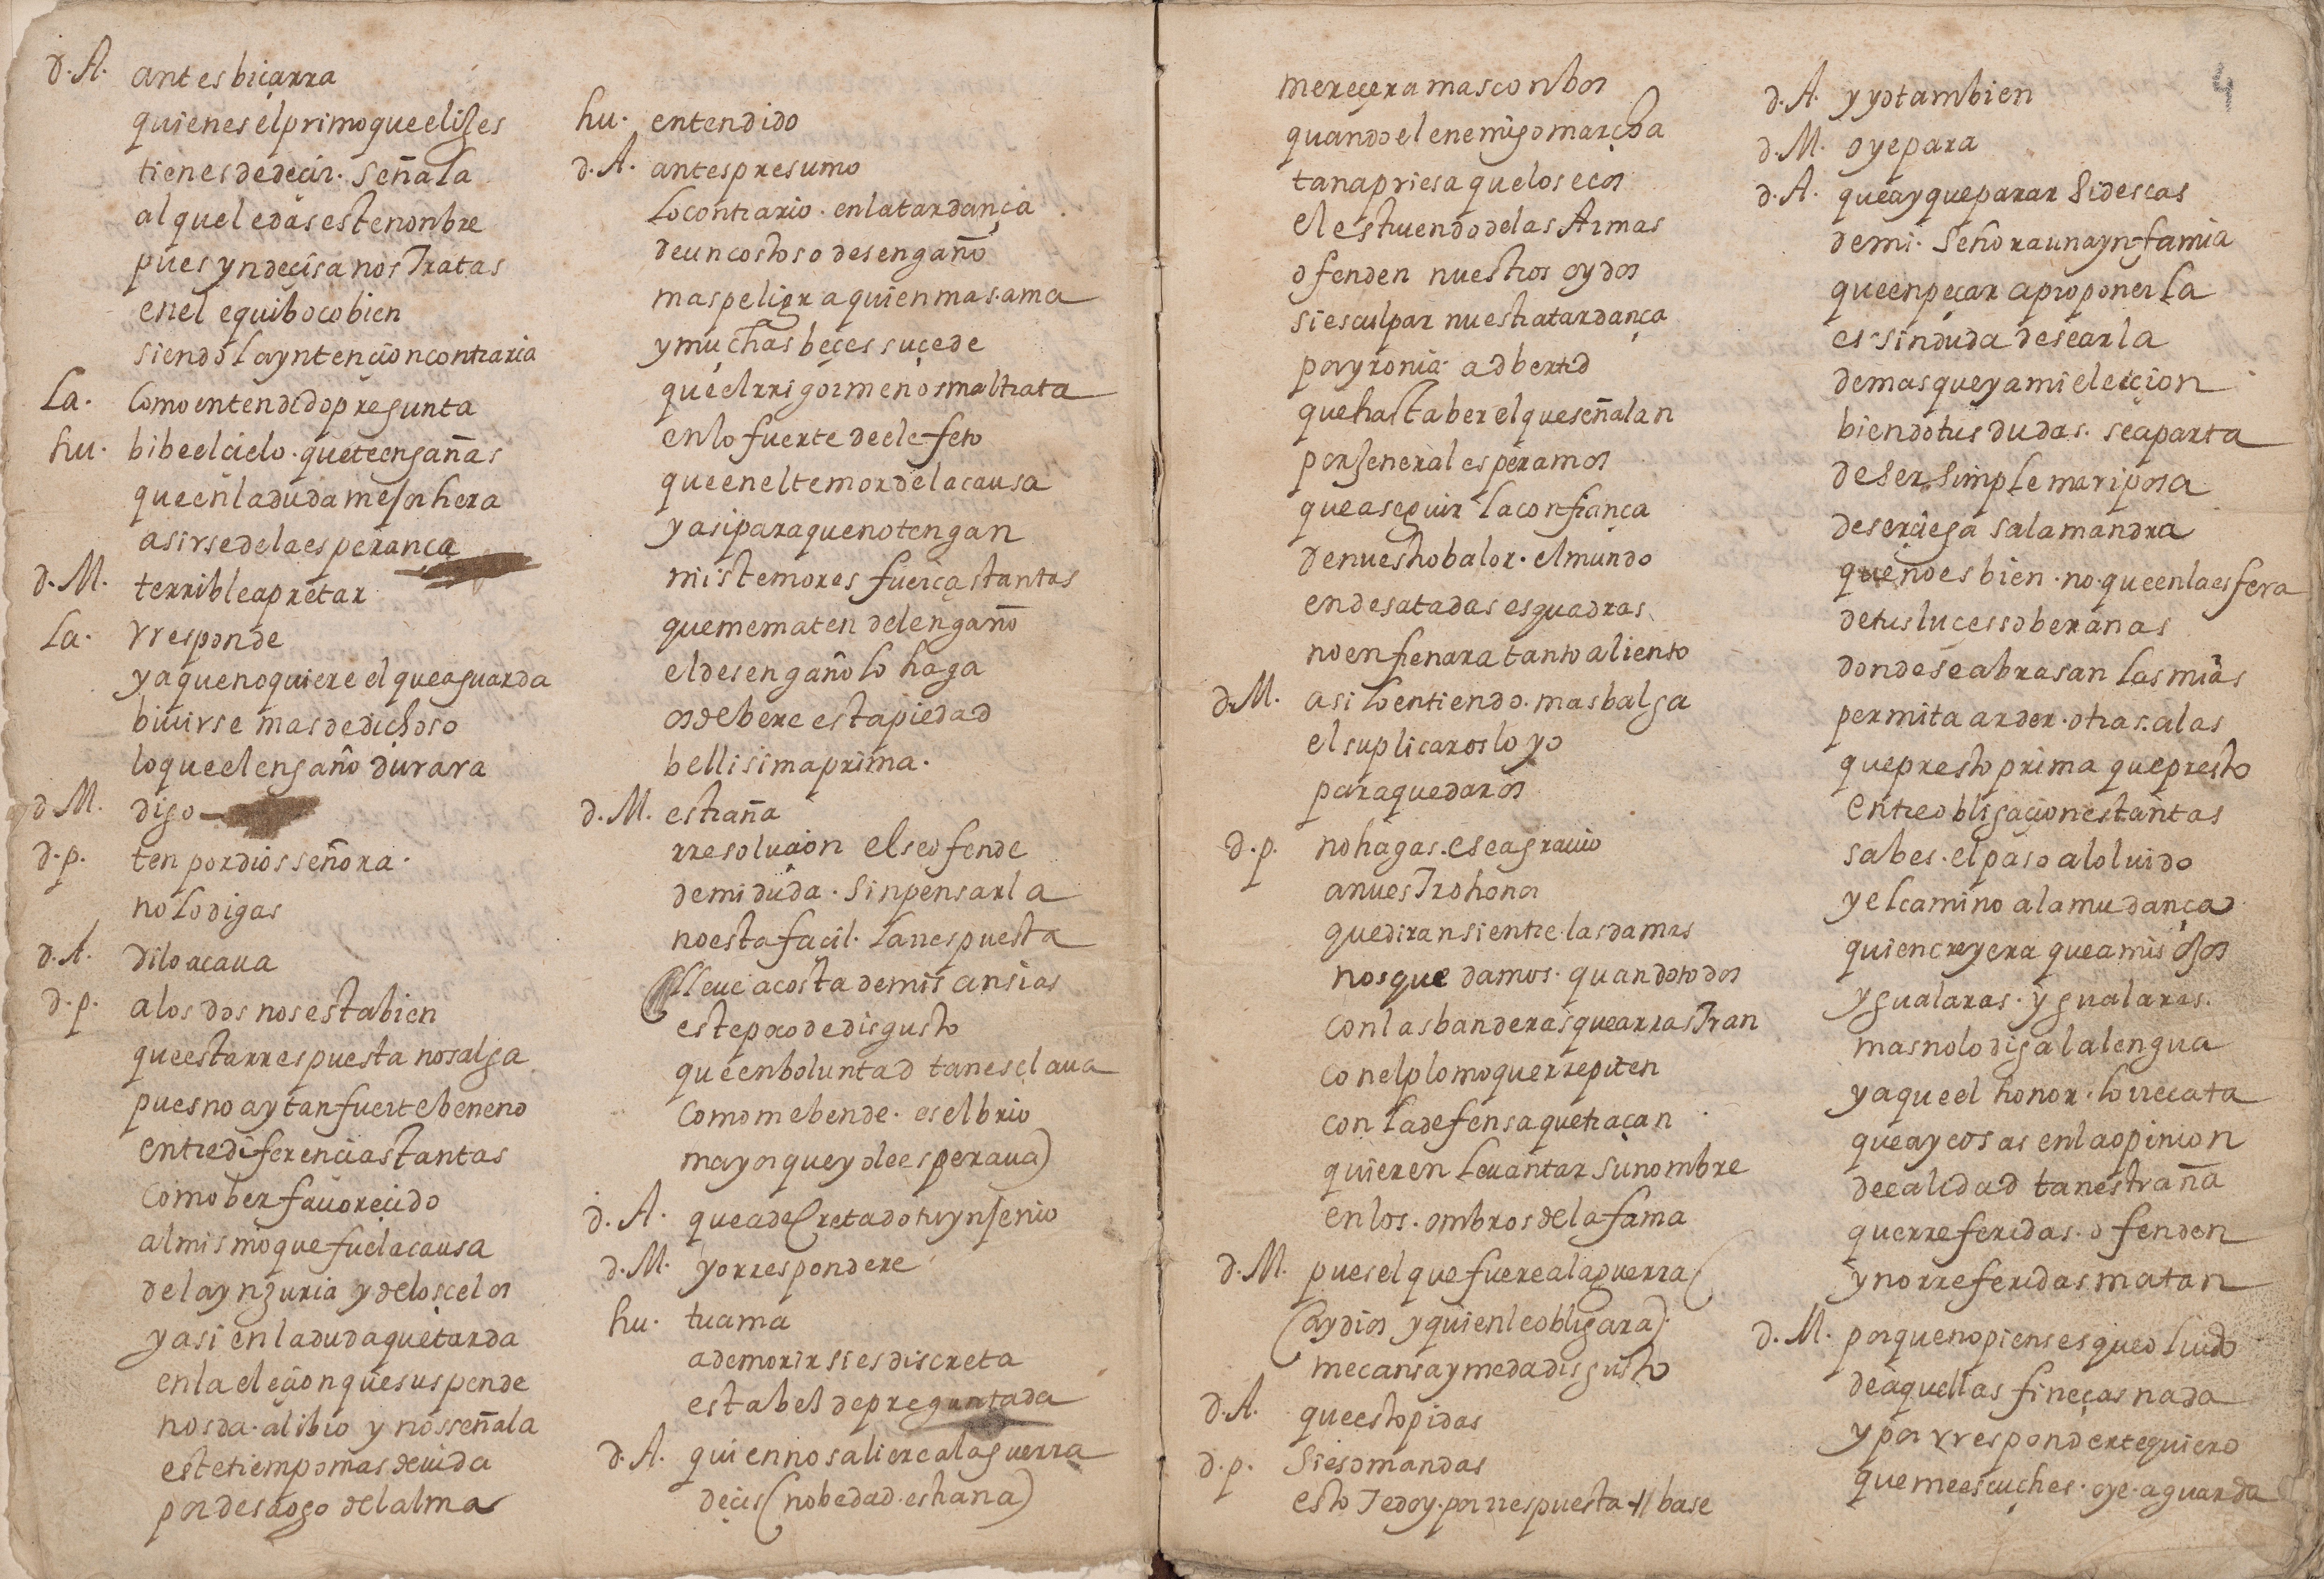 d. A. antes biçarra
quien es el primo que elijes
tienes de deçir. señala
al que le das este nonbre
pues yndeçisa nos tratas
en el equiboco bien
siendo la yntençion contraria
La. como entendido pregunta
hu. bibe el cielo. que te engañas
que en la duda mejor hera
asirse de la esperança
d. M. terrible apretar
La. rresponde
ya que no quiere el que aguarda
biuirse mas de dichoso
lo que el engaño durara
d M. digo
d. p. ten por dios señora.
no lo digas
d. A. dilo acaua
d. p. a los dos nos esta bien
que esta rrespuesta no salga
pues no ay tan fuerte beneno
entre diferencias tantas
como ber fauoreçido
al mismo que fue la causa
de la ynjuria y de los çelos
y asi en la duda que tarda
en la eleçion que suspende
nos da. alibio y nos señala
este tiempo mas de uida
por desaogo del alma
hu. entendido
d. A. antes presumo
lo contrario. en la tardança
de un costoso desengaño
mas peligra quien mas. ama
y muchas beçes suçede
que el rrigor menos maltrata
en lo fuerte de el efeto
que en el temor de la causa
y asi para que no tengan
mis temores fuerças tantas
que me maten del engaño
el desengaño lo haga
os debere esta piedad
bellisima prima.
d. M. estraña
rresoluçion el se ofende
de mi duda. sin pensarla
no esta façil. la rrespuesta
lleue a costa de mis ansias
este poco de disgusto
que en boluntad tan esclaua
como me bende. es el brio
mayor que yo le esperaua)
d. A. que a decretado tu ynjenio
d. M. yo rrespondere
hu. tu ama
a de morir si es discreta
esta bez de preguntada
d. A. quien no saliere a la guerra
deçis (nobedad. estraña)
mereçera mas con bos
quando el enemigo marcha
tan apriesa que los ecos
el estruendo de las Armas
ofenden nuestros oydos
si es culpar nuestra tardança
por yronia. adbertid
que hasta ber el que señalan
por jeneral esperamos
que a seguir la confiança
de nuestro balor. el mundo
en desatadas esquadras
no enfrenara tanto aliento
d. M. asi lo entiendo. mas balga
el suplicaros lo yo
para quedaros
d. p. no hagas. ese agrauio
a nuestro honor
que diran si entre. las damas
nos que damos. quando todos
con las banderas que arrastran
con el plomo que rrepiten
con la defensa que traçan
quieren leuantar su nombre
en los. ombros de la fama
d. M. pues el que fuere a la guerra
(ay dios y quien le obligara).
me cansa y me da disgusto
d. A. que esto pidas
d. p. si eso mandas
esto te doy. por rrespuesta -// base
4
d. A. y yo tambien
d. M. oye para
d. A. que ay que parar si deseas
de mi. señora una ynfamia
que enpeçar a proponerla
es sin duda desearla
demas que ya mi eleiçion
biendo tus dudas. se aparta
de ser simple mariposa
de ser çiega salamandra
que no es bien. no. que en la esfera
de tus luces soberanas
donde se abrasan las mias
permita arder. otras. alas
que presto prima que presto
entre obligaçiones tantas
sabes. el paso al oluido
y el camino a la mudança
quien creyera que a mis ojos
ygualaras. ygualaras.
mas no lo diga la lengua
ya que el honor. lo rrecata
que ay cosas en la opinion
de calidad tan estraña
que rreferidas. ofenden
y no rreferidas matan
d. M. porque no pienses que oluido
de aquellas fineças nada
y por rresponderte quiero
que me escuches. oye. aguarda